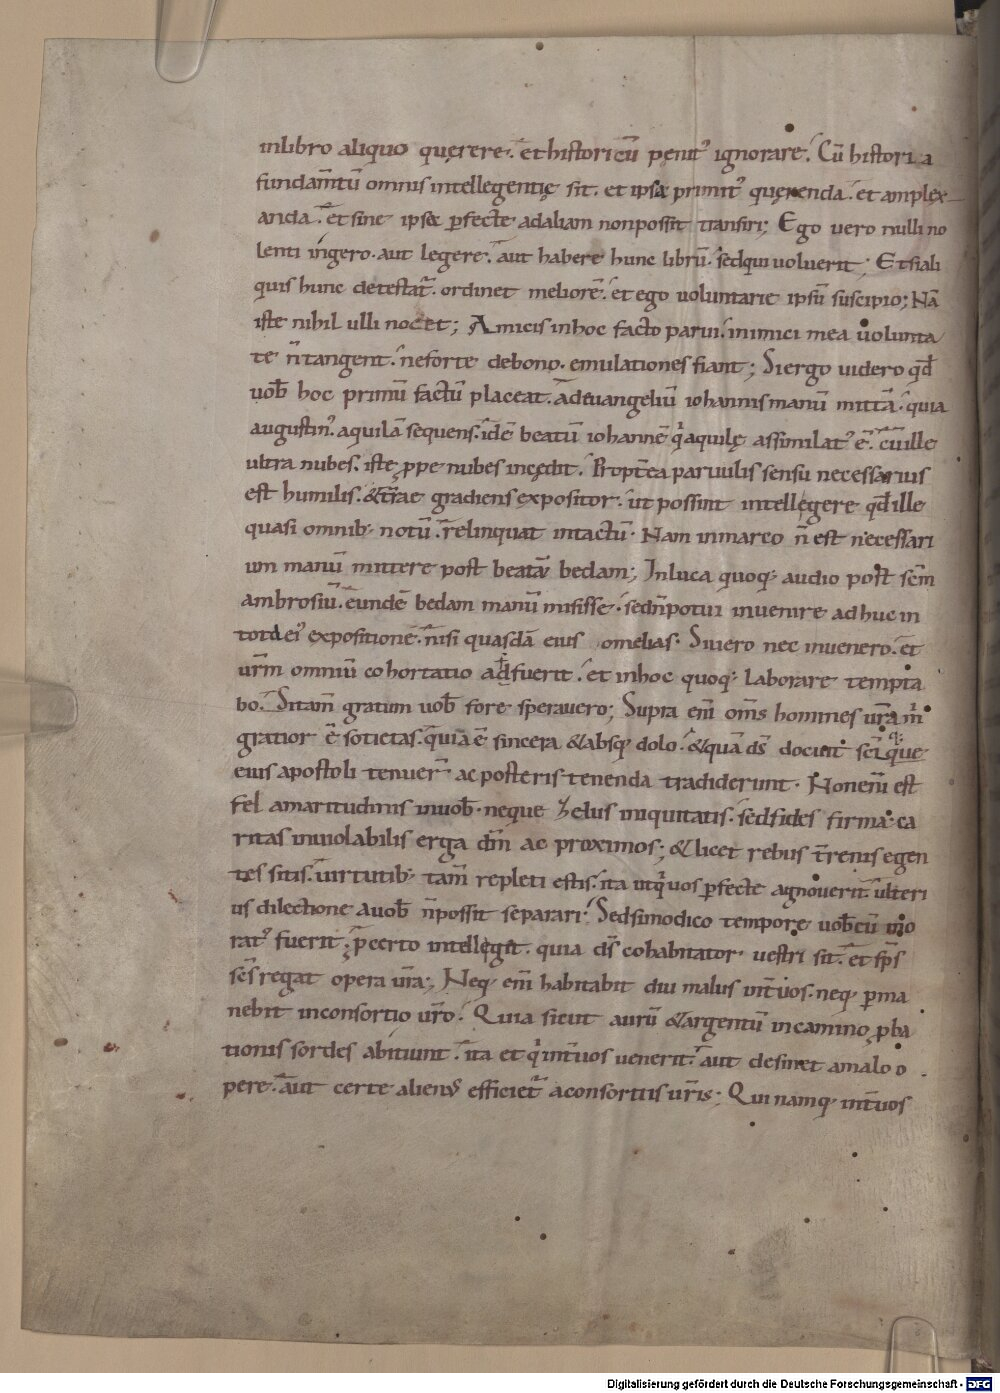 inlibro aliquo quęrere. et historicū penit᾽ ignorare. Cū historia
fundam̄tū omnis intellegentię sit. et ipsa primit᾽ quęrenda. et amplex
anda. et sine ipsa ꝑfecte adaliam nonpossit transiri; Ego vero nulli no
lenti ingero. aut legere. aut habere hunc librū. sedqui uoluerit; Et siali
quis hunc detestat᾽. ordinet meliorē. et ego uoluntarie ipsū suscipio; Nā
iste nihil ulli nocet; Amicis inhoc facto parui. inimici mea uolunta
te n̄ tangent. neforte debono. emulationes fiant; Siergo uidero qd̄
uob̄ hoc primū factū placeat. adeuangeliū iohannis manū mittā. quia
augustin᾽. aquilā sequens. idē beatū iohannē qͥ aquilę assimilat᾽ ē. cū ille
ultra nubes. iste ꝓpe nubes incędit. Propt̄ea paruulis sensu necessarius
est humilis. &t̄rae gradiens expositor. ut possint intellegere qd̄ ille
quasi omnib; notū relinquat intactū. Nam inmarco n̄ est necessari
um manū mittere post beatū bedam; Inluca quoq; audio post sc̄m
ambrosiū. eundē bedam manū misisse. sedn̄potui inuenire adhuc in
totā ei᾽ expositionē. nisi quasdā eius omelias. Siuero nec inuenero. et
ur̄m omniū cohortatio adfuerit. et inhoc quoq; laborare tempta
bo. Sitam̄ gratum uob̄ fore sperauero; Supra em̄ om̄s homines ur̄a m̄
gratior ē sotietas. quia ē sincera &absq; dolo. &quā d̄s docuit sc̄iq;
eius apostoli tenuer̄ ac posteris tenenda tradiderunt. Nonem̄ est
fel amaritudinis inuob̄. neque zelus iniquitatis. sedfides firma. ca
ritas inuiolabilis erga dm̄ ac proximos; & licet rebus t̄renis egen
tes sitis. uirtutib; tam̄ repleti estis. ita utqͥ uos ꝑfecte agnouerit. ulteri
us dilectione auob̄ n̄possit separari. Sedsimodico tempore uob̄cū mo
rat᾽ fuerit. ꝓcerto intellegit. quia d̄s cohabitator uestri sit. et sp̄s
sc̄s regat opera ur̄a; Neq; em̄ habitabit diu malus int̄ uos. neq; ꝑma
nebit inconsortio ur̄o. Quia sicut aurū &argentū incamino ꝓba
tionis sordes abitiunt. ita et qͥ int̄ uos uenerit. aut desinet amalo o
pere. aut certe alien᾽ efficiet᾽ aconsortiis ur̄is; Qui namq; int̄ uos
Digitalisierung gefördert durch die Deutsche Forschungsgemeinschaft - DFG